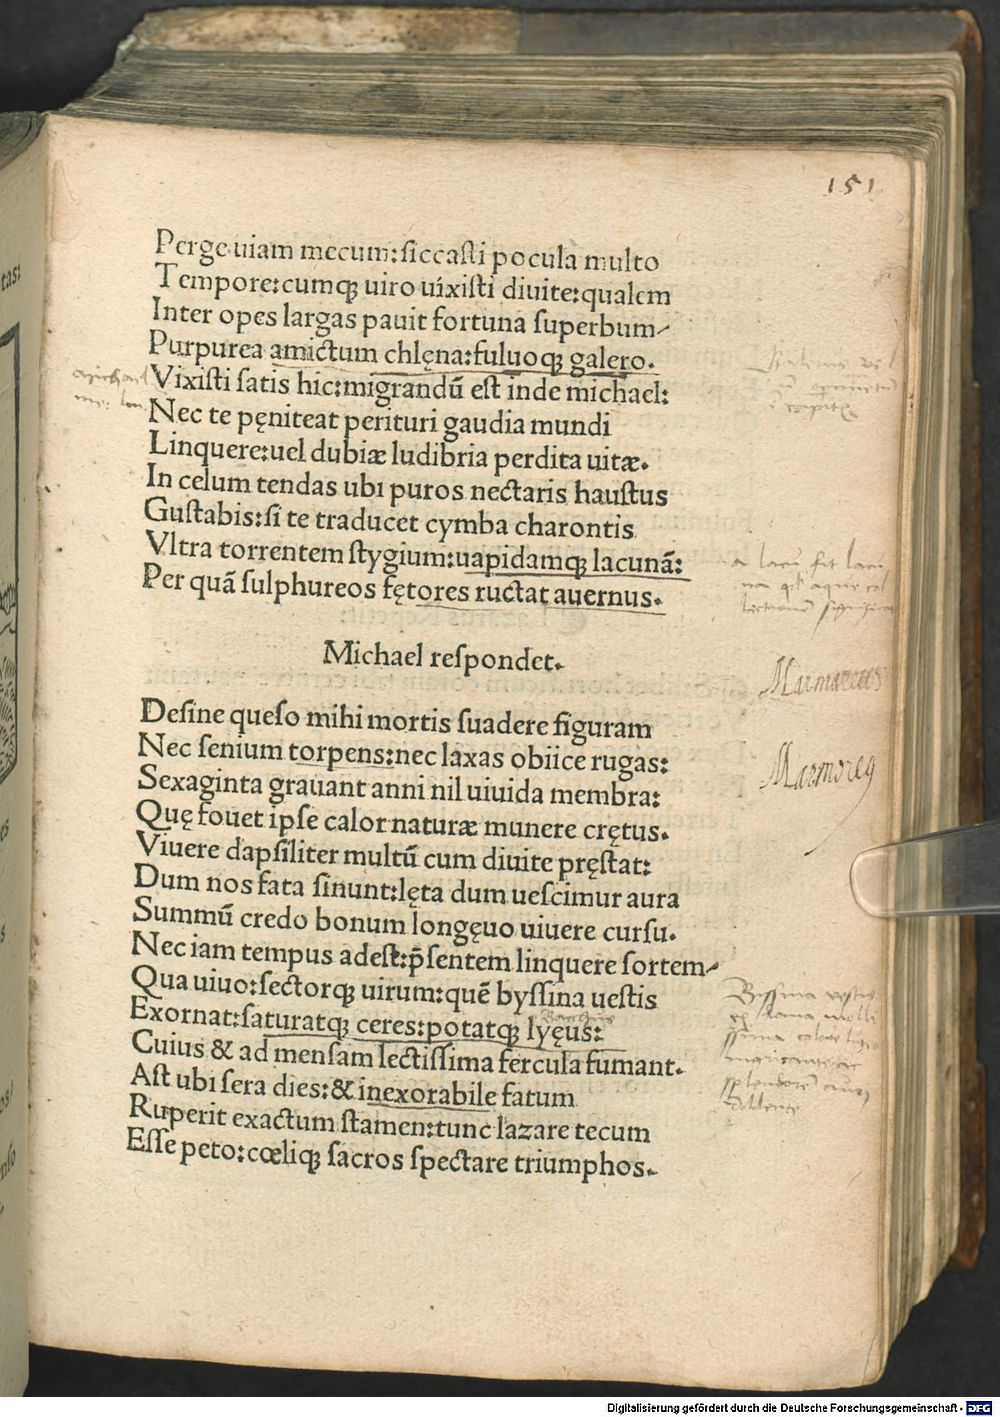 151
Perge uiam mecum: ſiccaſti pocula multo
Tempore: cumqꝫ uiro uixiſti diuite: qualem
Inter opes largas pauit fortuna ſuperbum
Purpurea amictum chlęna: fuluoqꝫ galero.
Vixiſti ſatis hic: migrandū eſt inde michael:
Nec te pęniteat perituri gaudia mundi
Linquere: uel dubiæ ludibria perdita uitæ.
In celum tendas ubi puros nectaris hauſtus
Guſtabis: ſi te traducet cymba charontis
Vltra torrentem ſtygium: uapidamqꝫ lacunā:
Per quā ſulphureos fętores ructat auernus.
Michael reſpondet.
Marmareus
Deſine queſo mihi mortis ſuadere figuram
Nec ſenium torpens: nec laxas obiice rugas:
Sexaginta grauant anni nil uiuida membra:
Quę fouet ipſe calor naturæ munere crętus.
Viuere dapſiliter multū cum diuite pręſtat:
Dum nos fata ſinunt: lęta dum ueſcimur aura
Summū credo bonum longęuo uiuere curſu.
Nec iam tempus adeſt: p̄ſentem linquere ſortem
Qua uiuo: ſectorqꝫ uirum: quē byſſina ueſtis
Exornat: ſaturatqꝫ ceres: potatqꝫ lyęus:
Cuius & ad menſam lectiſſima fercula fumant.
Aſt ubi ſera dies: & inexorabile fatum
Ruperit exactum ſtamen: tunc lazare tecum
Eſſe peto: cœliqꝫ ſacros ſpectare triumphos.
Digitalisierung gefördert durch die Deutsche Forschungsgemeinschaft - DFG